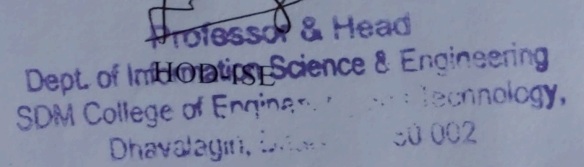 Professor & Head
Dept. of Information Science & Engineering
HOD-ISE
SDM College of Technology,
Dhavalagiri, 002